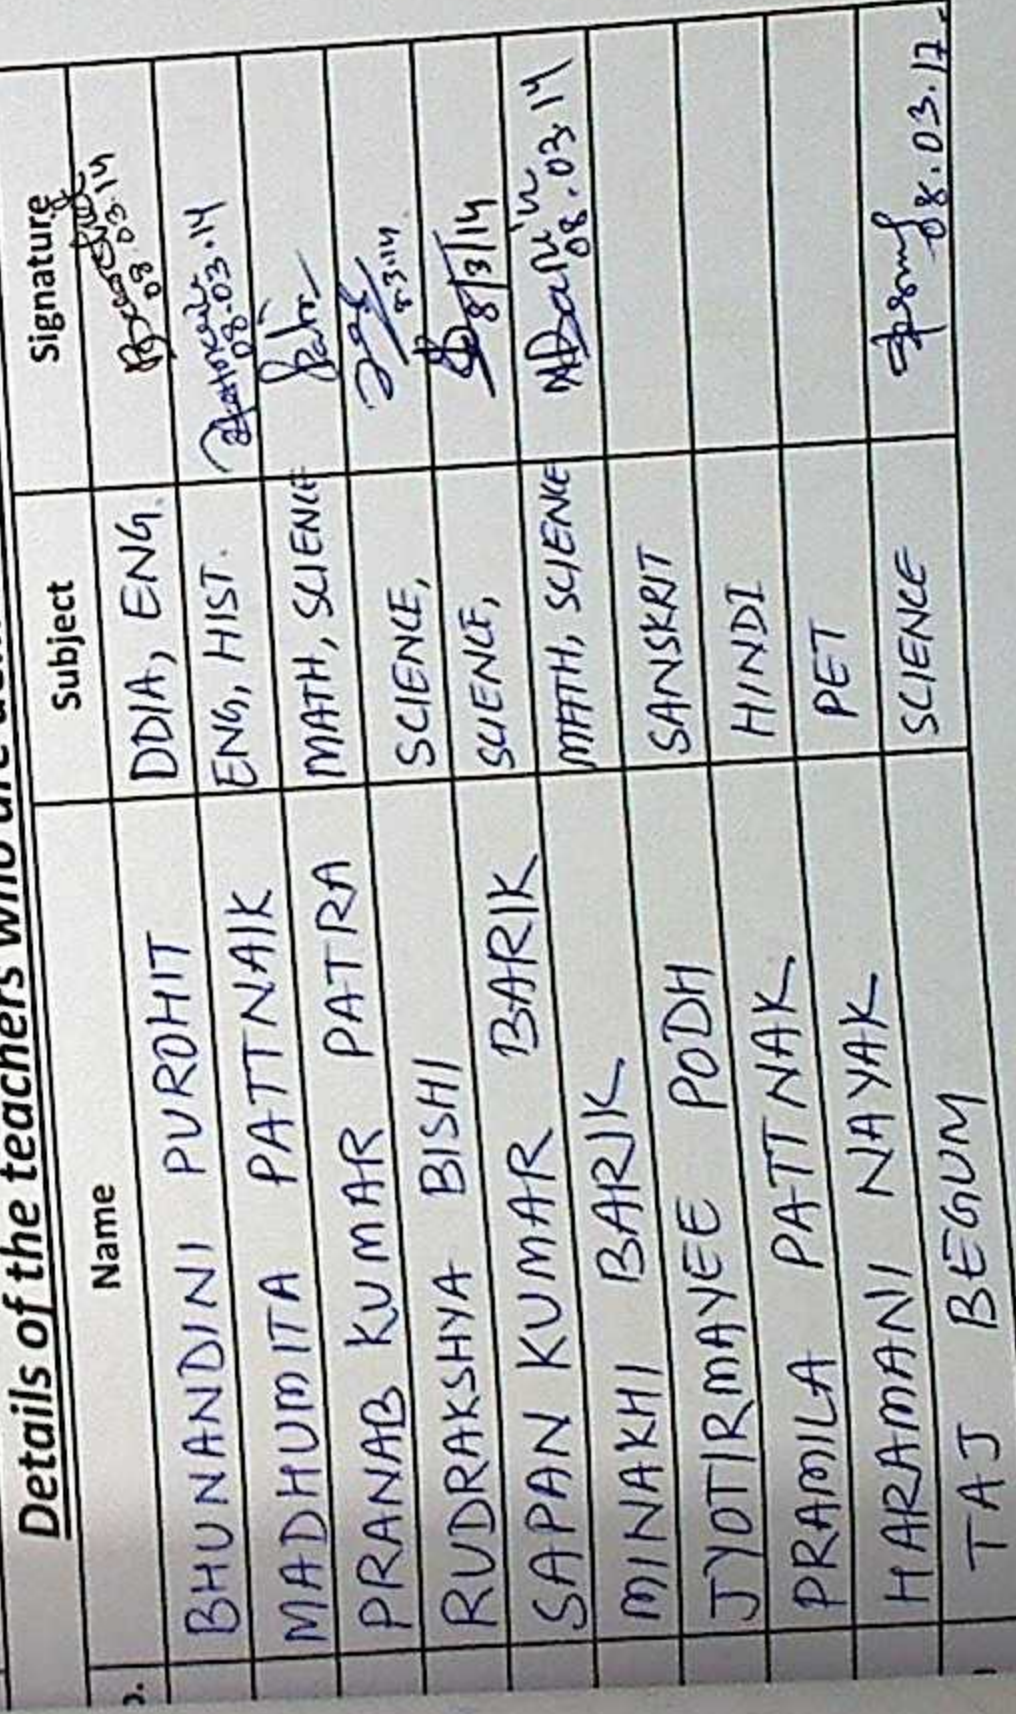 Details of the teachers who
Name Subject Signature
BHUNANDINI PUROHIT DDIA, ENG. 08.03.14
MADHUMITA PATTNAIK ENG, HIST. 08.03.14
PRANAB KUMAR PATRA MATH, SCIENCE
RUDRAKSHYA BISHI SCIENCE, 8.3.14
SAPAN KUMAR BARIK SCIENCE, 8/3/14
MINAKHI BARIK MATH, SCIENCE 08.03.14
JYOTIRMAYEE PODH SANSKRIT
PRAMILA PATTNAK HINDI
HARAMANI NAYAK PET
TAJ BEGUM SCIENCE 08.03.17.